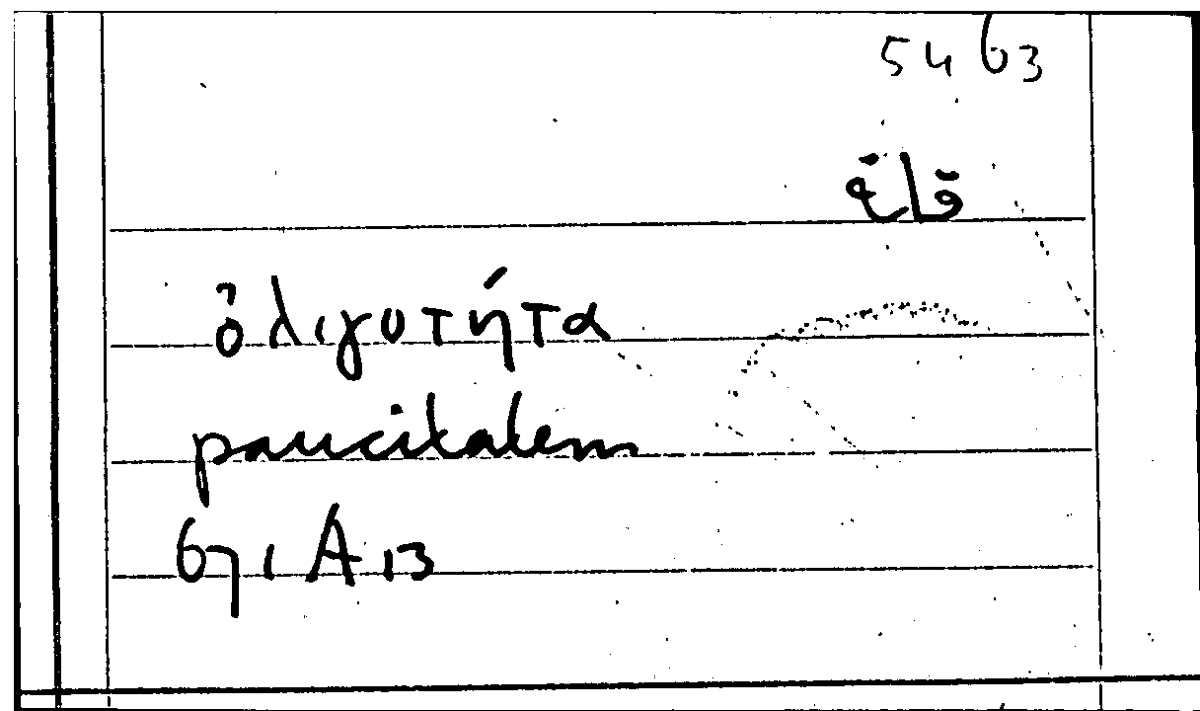 5463
قلة
ὀλιγοτήτα
paucitatem
671 A 13